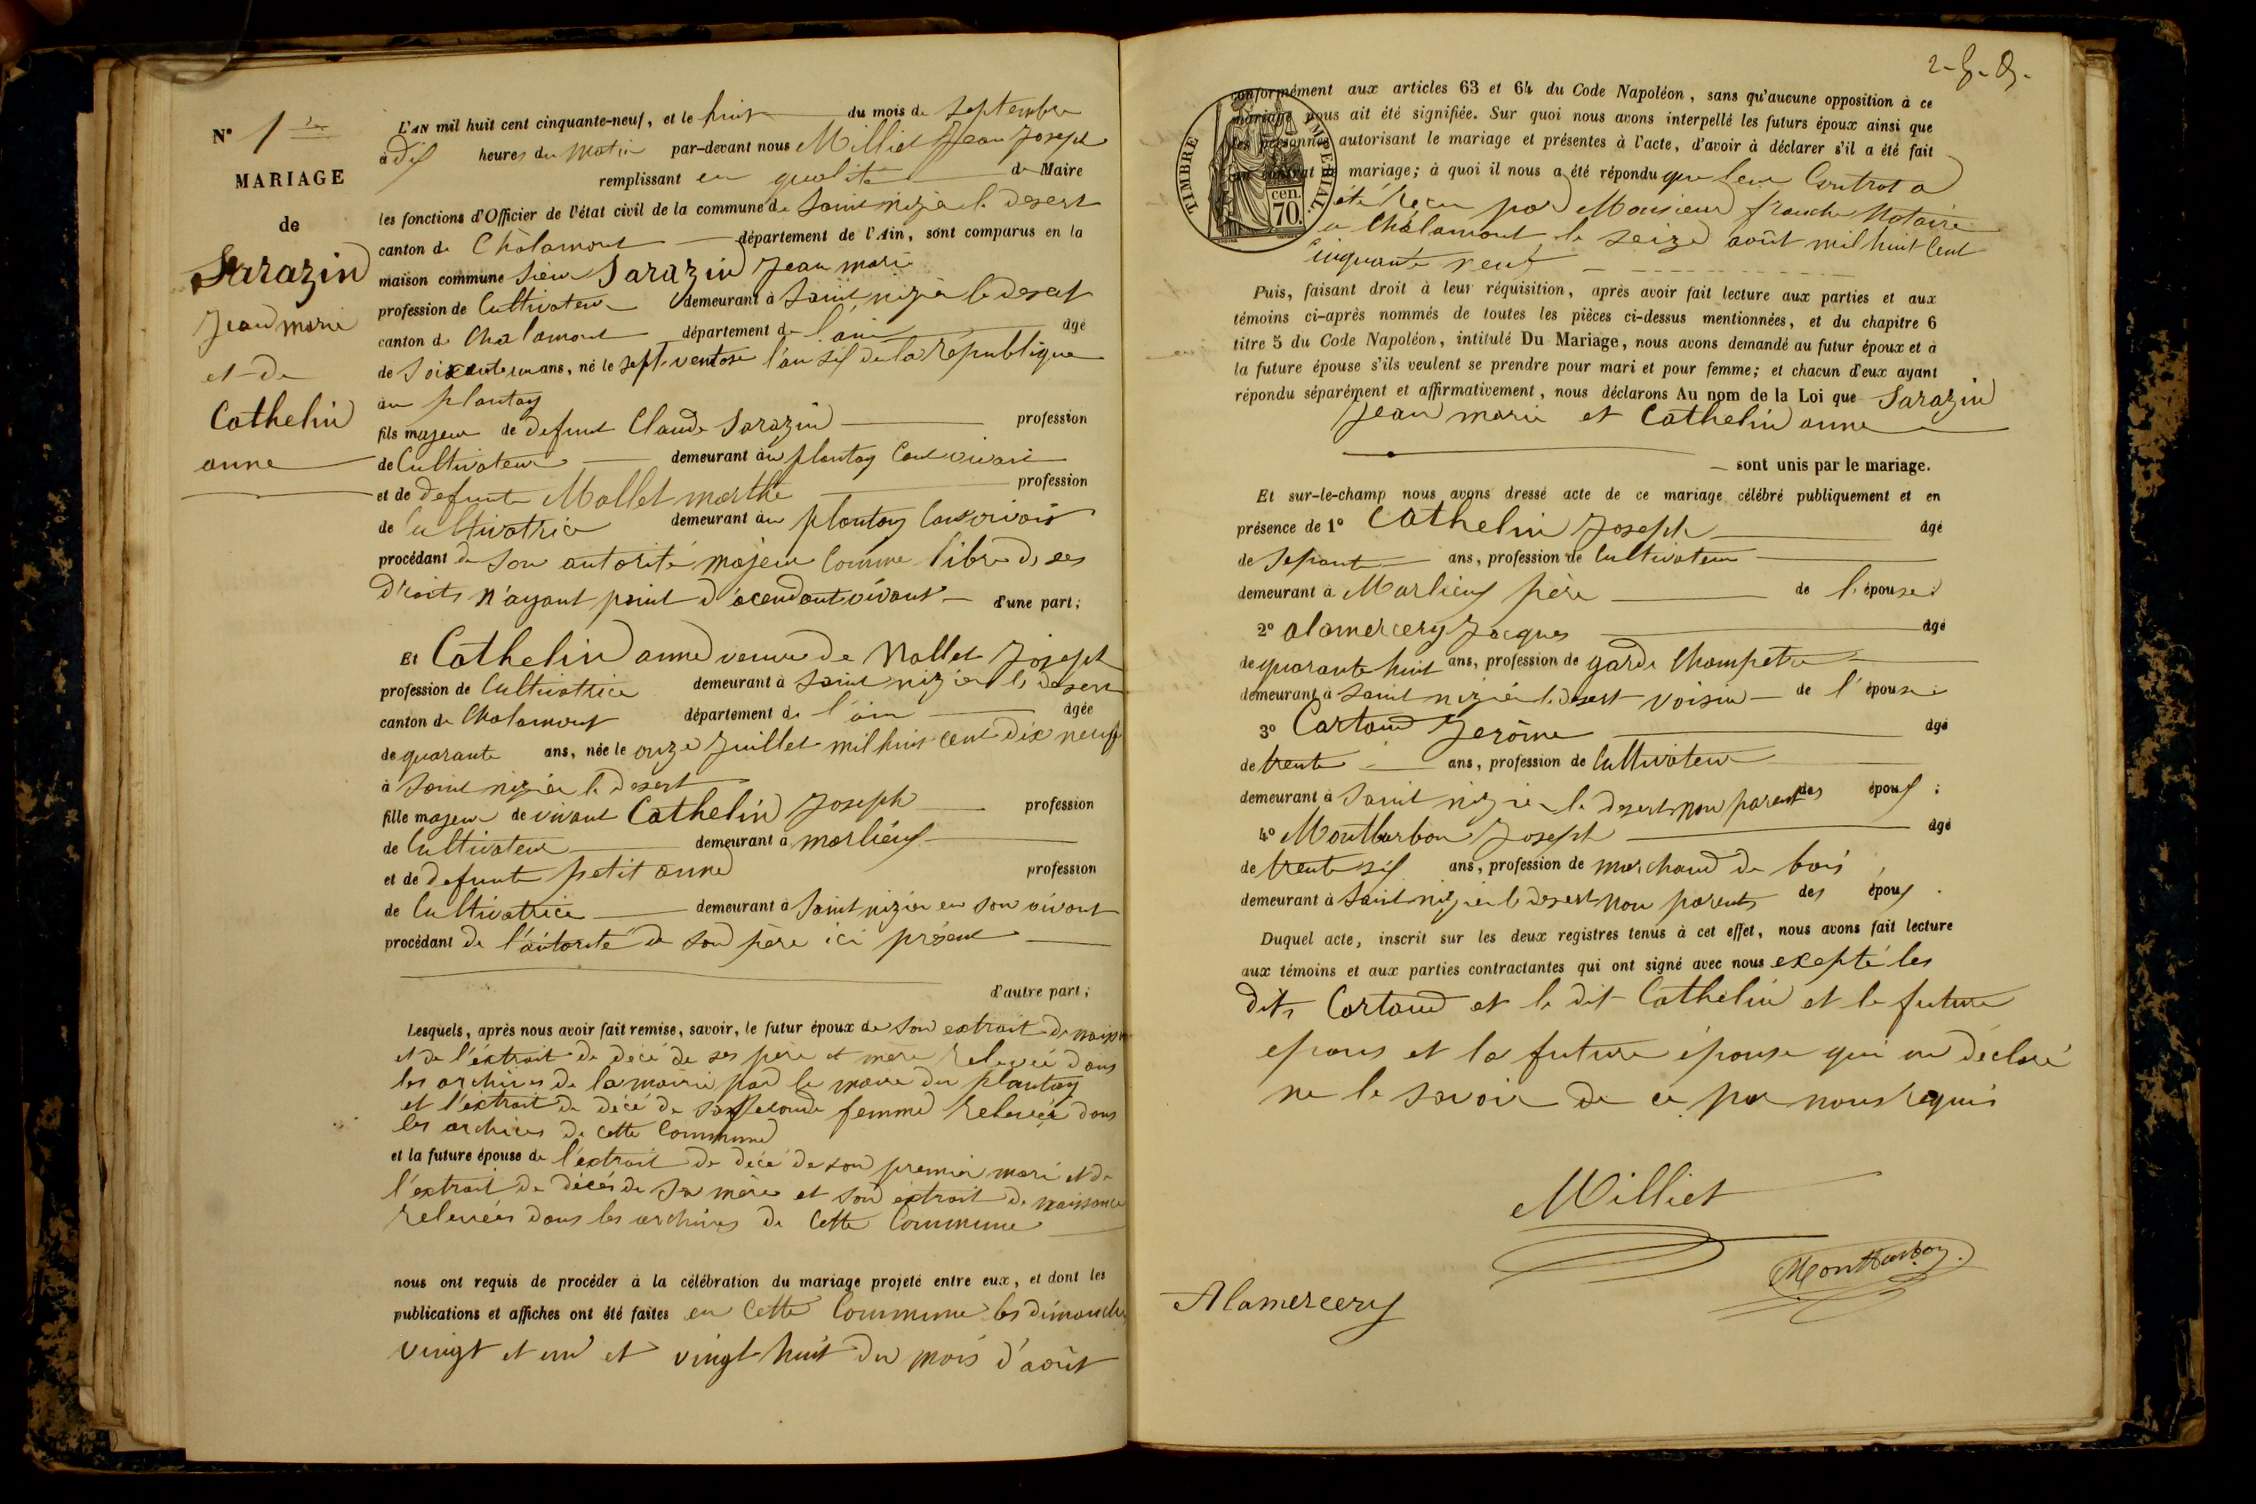 N° 1er
MARIAGE
de
Sarazin
Jean marie
et de
Cathelin
anne
L'AN mil huit cent cinquante-neuf, et le huit du mois de Septembre
à dix heures du matin par-devant nous Milliet Jean Joseph
remplissant en qualité de Maire
les fonctions d'Officier de l'état civil de la commune de Saint nizier le desert
canton de Chalamont département de l'Ain, sont comparus en la
maison commune Sieur Sarazin Jean marie
profession de Cultivateur demeurant à Saint nizier le desert
canton de Chalamont département de l'ain âgé
de Soixante un ans, né le sept ventose l'an six de la République
au plantay
fils majeur de defunt Claude Sarazin profession
de Cultivateur demeurant au plantay
et de defunte Mallet marthe profession
de Cultivatrice demeurant au plantay
procédant de son autorité majeur comme libre de ses
droits n'ayant point d'acendant vivant d'une part;
Et Cathelin anne veuve de Nallet Joseph
profession de Cultivatrice demeurant à Saint nizier le desert
canton de Chalamont département de l'ain âgée
de quarante ans, née le onze Juillet mil huit cent dix neuf
à Saint nizier le desert
fille majeur de vivant Cathelin Joseph profession
de Cultivateur demeurant à marlieux
et de defunte petit anne profession
de Cultivatrice demeurant à Saint nizier en son vivant
procédant de l'autorité de son père ici présent
d'autre part;
Lesquels, après nous avoir fait remise, savoir, le futur époux de son extrait de
et de l'éxtrait de décé de ses père et mère relevée dans
les archives de la mairie par le maire du plantay
et l'extrait de décé de sa seconde femme relevée dans
les archives de cette Commune
et la future épouse de l'éxtrait de décé de son premier mari et de
l'extrait de décés de sa mère et son extrait de naissance
relevées dans les archives de cette Commune
nous ont requis de procéder à la célébration du mariage projeté entre eux, et dont les
publications et affiches ont été faites en cette Commune les dimanches
vingt et un et vingt huit du mois d'août
conformément aux articles 63 et 64 du Code Napoléon, sans qu'aucune opposition à ce
mariage nous ait été signifiée. Sur quoi nous avons interpellé les futurs époux ainsi que
les personnes autorisant le mariage et présentes à l'acte, d'avoir à déclarer s'il a été fait
un contrat de mariage; à quoi il nous a été répondu que leur Contrat a
été reçu par Monsieur franche Notaire
a Chalamont le seize août mil huit Cent
Cinquante neuf
TIMBRE IMPERIAL.
cen.
70.
Puis, faisant droit à leur réquisition, après avoir fait lecture aux parties et aux
témoins ci-après nommés de toutes les pièces ci-dessus mentionnées, et du chapitre 6
titre 5 du Code Napoléon, intitulé Du Mariage, nous avons demandé au futur époux et à
la future épouse s'ils veulent se prendre pour mari et pour femme; et chacun d'eux ayant
répondu séparément et affirmativement, nous déclarons Au nom de la Loi que Sarazin
Jean marie et Cathelin anne
sont unis par le mariage.
Et sur-le-champ nous avons dressé acte de ce mariage célébré publiquement et en
présence de 1° Cathelin Joseph âgé
de Sepante ans, profession de Cultivateur
demeurant à Marlieux père de l'épouse
2° alamercery Jacques âgé
de quarante huit ans, profession de garde Champetre
demeurant à Saint nizier le desert voisin de l'épouse
3° Cartaud Jerôme âgé
de trente ans, profession de Cultivateur
demeurant à Saint nizier le desert non parent des époux;
4° Montbarbon Joseph âgé
de trente six ans, profession de marchand de bois
demeurant à Saint nizier le desert non parents des époux.
Duquel acte, inscrit sur les deux registres tenus à cet effet, nous avons fait lecture
aux témoins et aux parties contractantes qui ont signé avec nous exepté les
dits Cartaud et le dit Cathelin et le future
epous et la future épouse qui on déclaré
ne le savoir de ce par nous requis
Milliet
Montbarbon
Alamercery